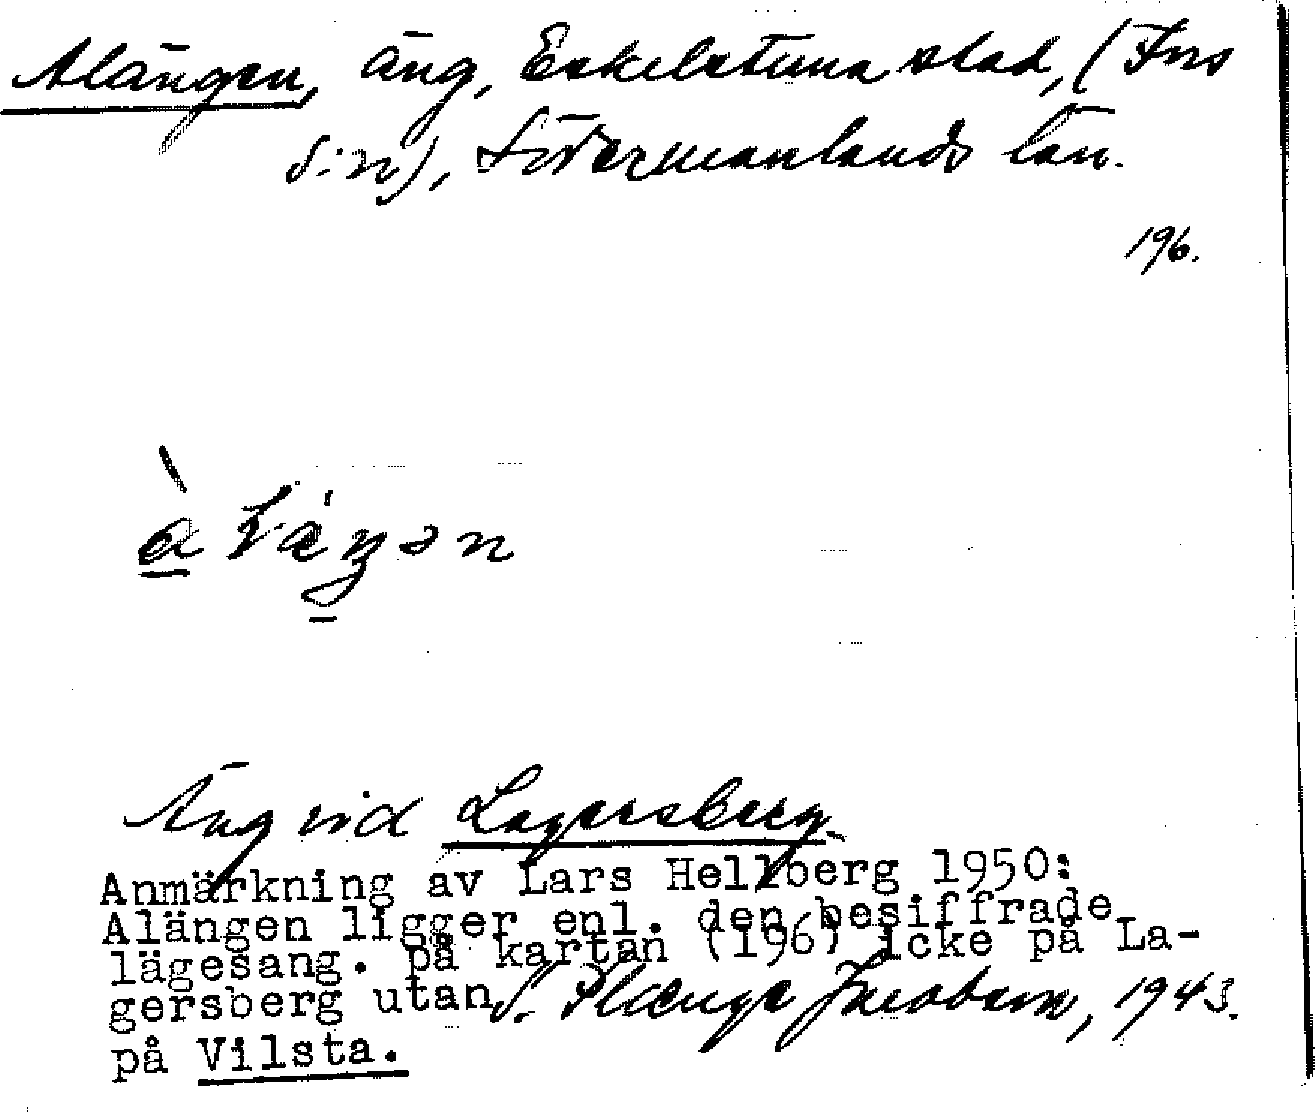 Alängen, äng, Eskilstuna stad, (Fors
s:n), Södermanlands län.
196.
Äng vid Lagersberg.
Anmärkning av Lars Hellberg 1950:
Alängen ligger enl. den besiffrade
lägesang. på kartan (196) icke på La-
gersberg utan
S. Plænge Jacobson, 1943.
på Vilsta.